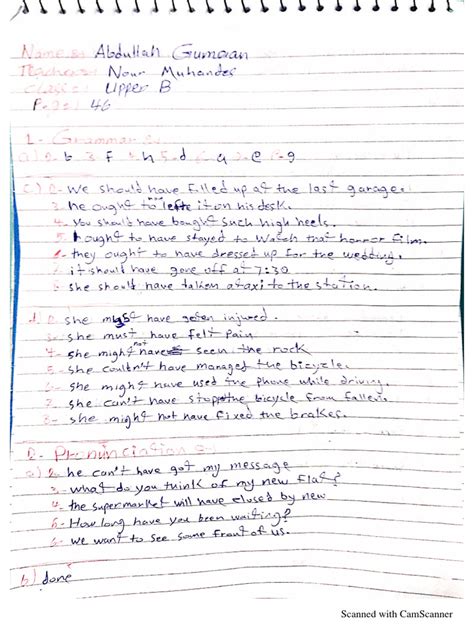 Name: Abdullah Gumaan
Teacher: Nour Muhandes
Class: Upper B
P. 46
1- Grammar
a) 2- b 3- f 4- h 5- d 6- a 7- e 8- g
c) 2- We should have filled up at the last garage.
3- he ought to left it on his desk.
4- you should have bought such high heels.
5- I ought to have stayed to Watch that horror film.
6- they ought to have dressed up for the wedding.
7- it should have gove off at 7:30
8- she should have taken a taxi to the station.
d) 2- she must have geten injured.
3- she must have felt pain.
4- she might not have seen the rock
5- she couldn't have managed the bicycle.
6- she might have used the phone while driving.
7- she can't have stop the bicycle from fallen.
8- she might not have fixed the brakes.
2- Pronunciation
a) 2- he can't have got my message
3- what do you think of my new flat?
4- the supermarket will have closed by new
5- How long have you been waiting?
6- we want to see some front of us.
b) done
Scanned with CamScanner